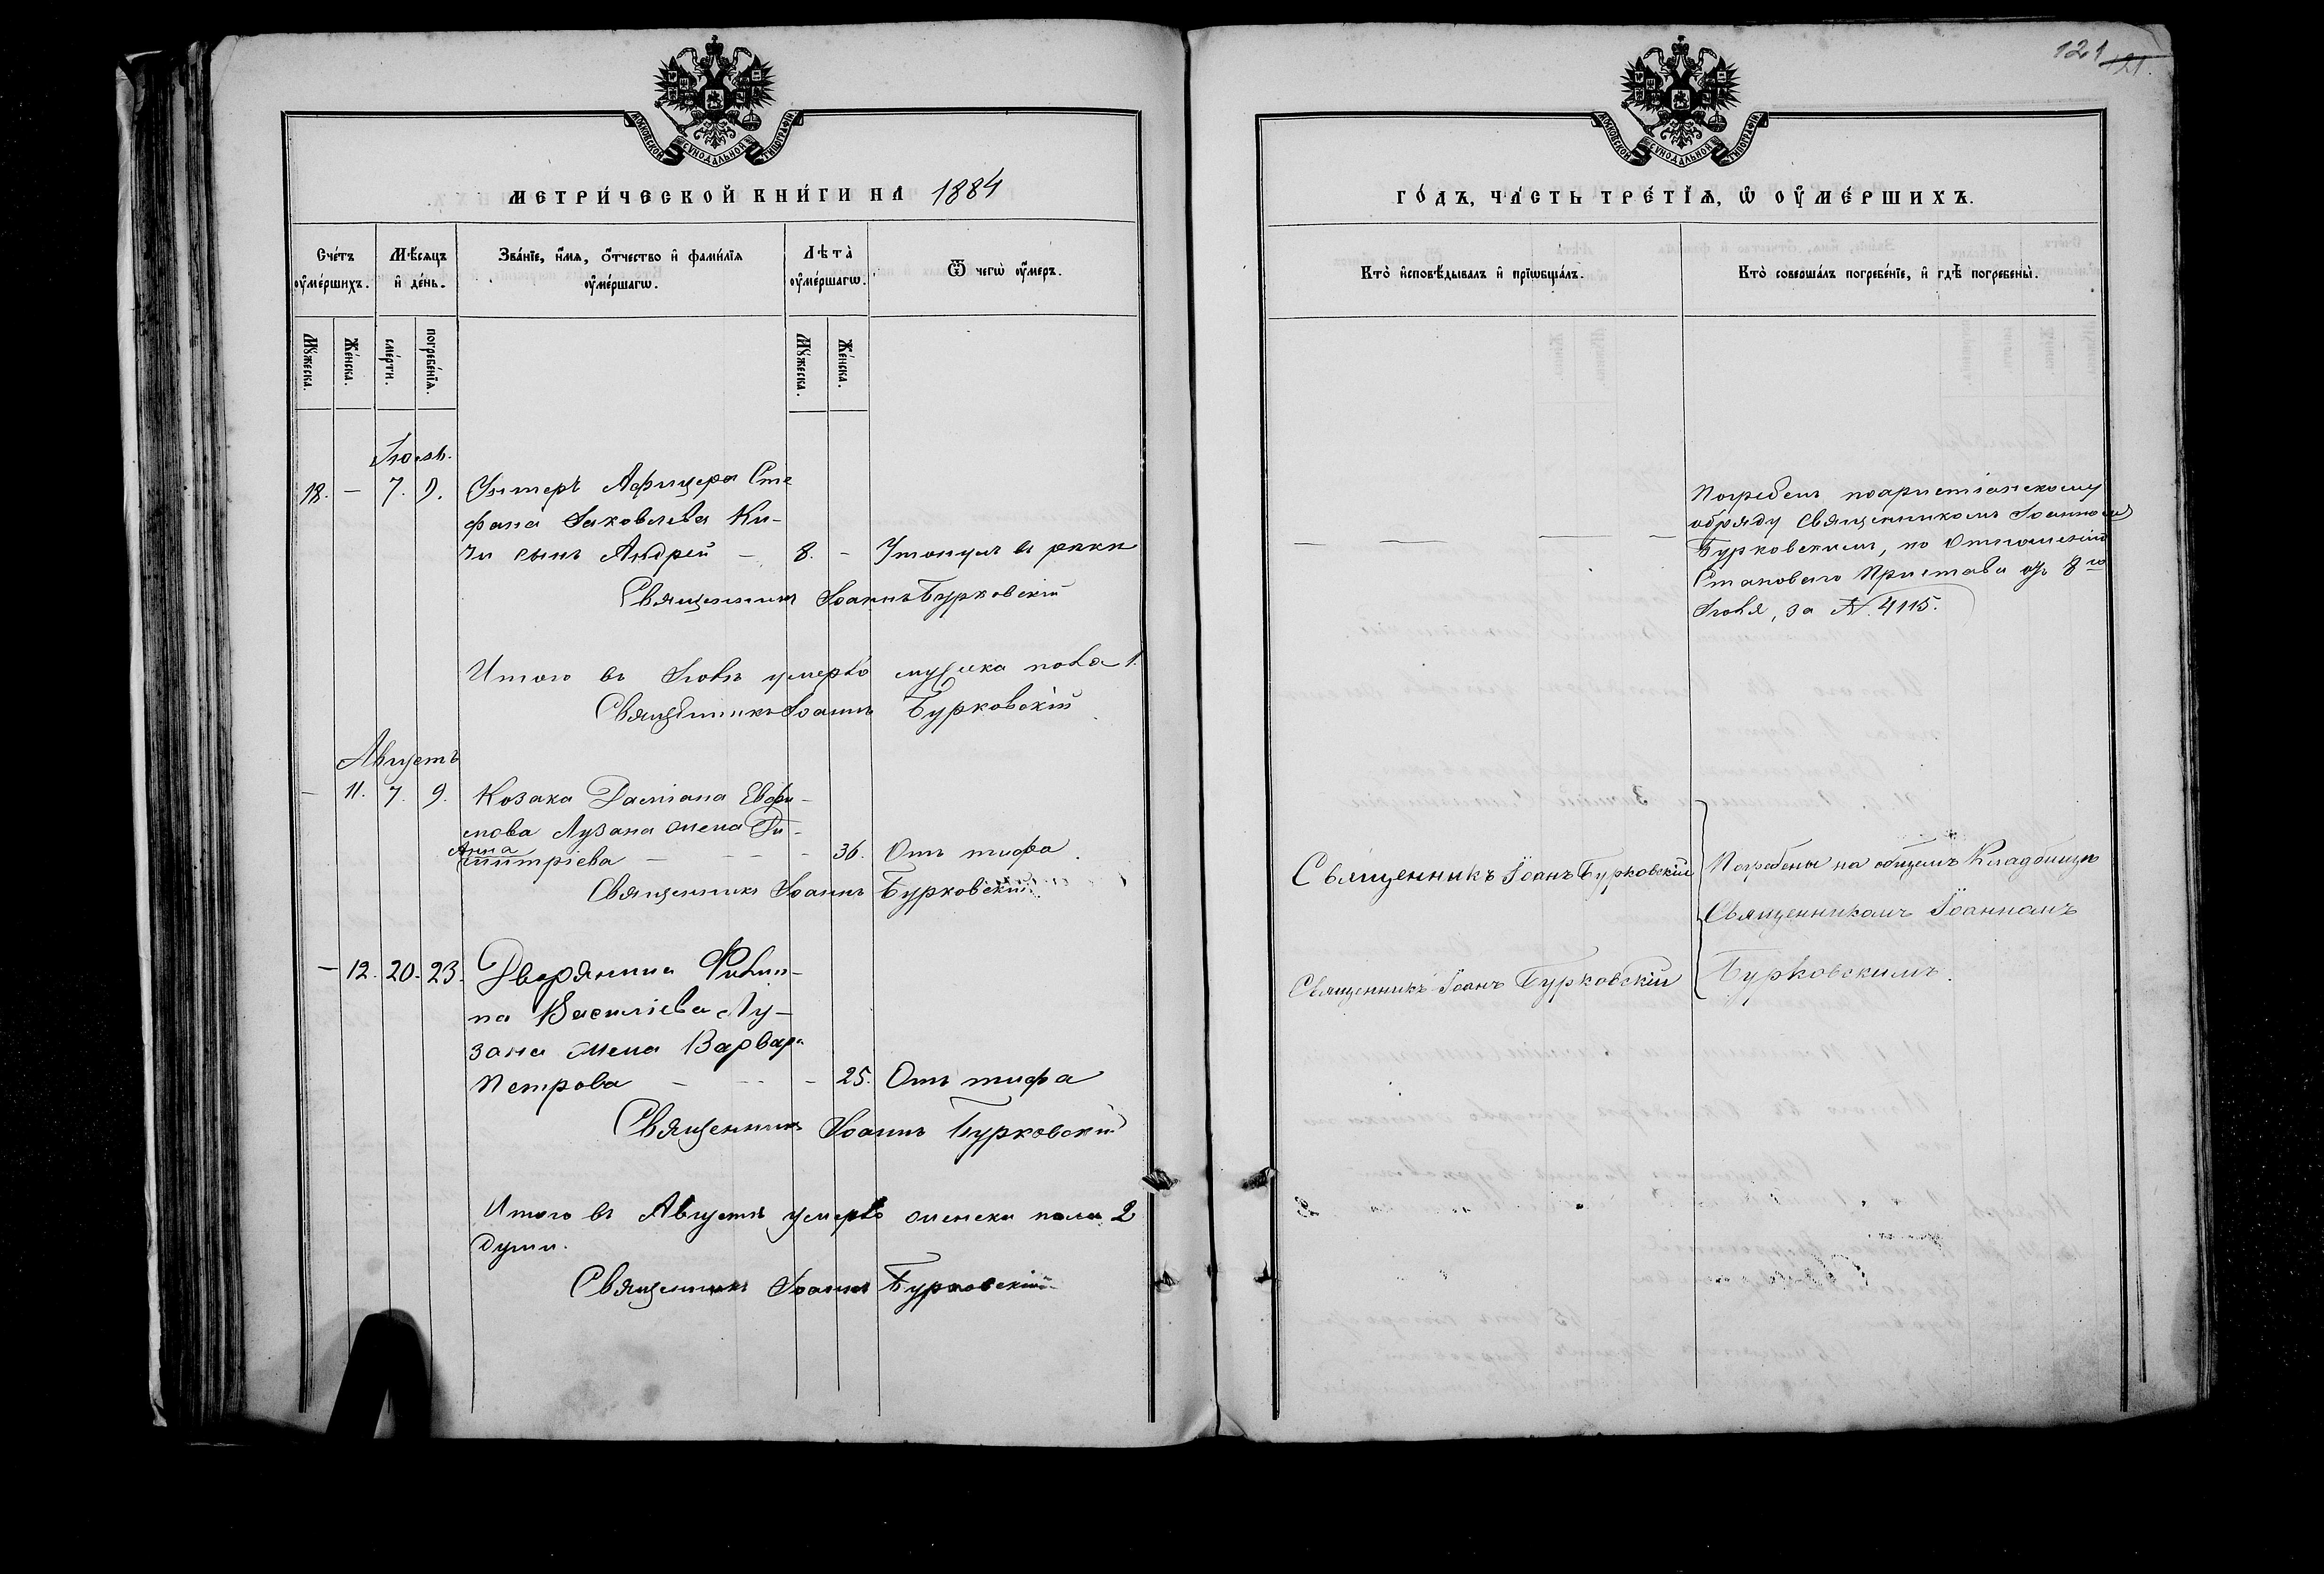 МОСКОВСКОЙ СѴНОДАЛЬНОЙ ТИПОГРАФІИ
МЕТРИ́ЧЕСКОЙ КНИ́ГИ НА 1884
Сче́тъ ᲂу҆ме́ршихъ.
Мѣ́сяцъ и҆ де́нь.
Зва́нїе, и҆́мѧ, ѻ҆́тчество и҆ фами́лїѧ ᲂу҆ме́ршагѡ.
Лѣта̀ ᲂу҆ме́ршагѡ.
Ѿ чегѡ̀ ᲂу҆́меръ.
Мꙋ́жеска.
Же́нска.
сме́рти.
погребе́нїѧ.
Мꙋ́жеска.
Же́нска.
Іюль.
18. — 7. 9. Унтеръ Афицера Сте
фана Іаковлева Ки-
чи сынъ Андрей — 8. - Утонулъ въ рѣкѣ
Священникъ Іоаннъ Бурковскій
Итого въ Іюлѣ умерло мужска пола 1.
Священникъ Іоаннъ Бурковскій
Августъ
— 11. 7. 9. Козака Даміана Евфи-
мова Лузана жена Ди-
Анна
митріева — 36. Отъ тифа
Священникъ Іоаннъ Бурковскій
— 12. 20. 23. Дворянина Филип-
па Василіева Лу-
зана жена Варвара
Петрова — 25. Отъ тифа
Священникъ Іоаннъ Бурковскій
Итого въ Августѣ умерло женска пола 2
души.
Священникъ Іоаннъ Бурковскій
121 121.
МОСКОВСКОЙ СѴНОДАЛЬНОЙ ТИПОГРАФІИ
ГО́ДЪ, ЧА́СТЬ ТРЕ́ТЇѦ, Ѡ҆ ОУ҆МЕ́РШИХЪ.
Кто̀ и҆сповѣ́дывалъ и҆ прїѡбща́лъ.
Кто̀ соверша́лъ погребе́нїе, и҆ гдѣ̀ погребены̀.
Погребенъ похристіанскому
обряду Священникомъ Іоанномъ
Бурковскимъ, по Отношенію
Становаго Пристава отъ 8го
Іюля, за №. 4115.
Священникъ Іоанъ Бурковскій
Погребены на общемъ Кладбищѣ
Священникомъ Іоанномъ
Бурковскимъ.
Священникъ Іоанъ Бурковскій